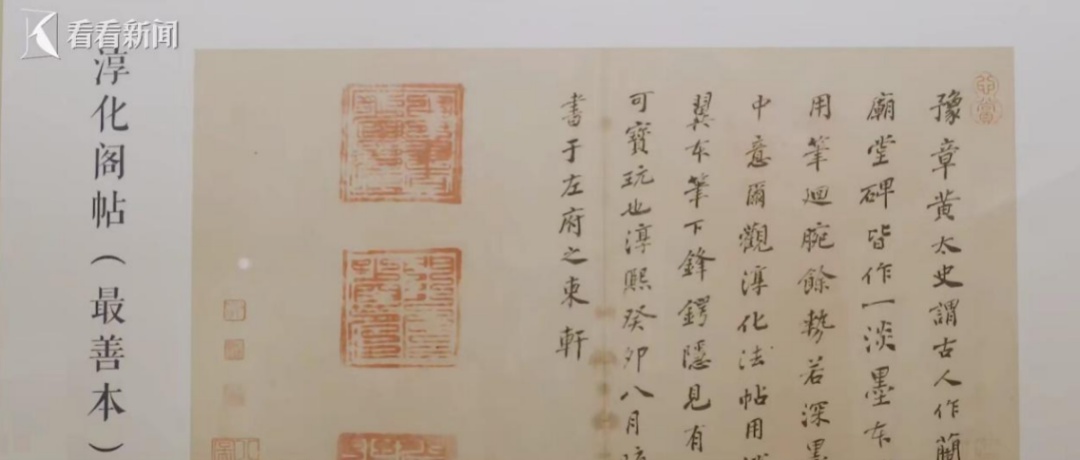 看看新闻
淳化阁帖（最善本）
豫章黄太史謂古人作蕳
廟堂碑皆作一淡墨本
用筆迴腕餘勢若深墨
中意爾觀淳化法帖用
翼本筆下鋒鍔隱見有
可寶玩也淳熙癸卯八月
書于左府之東軒